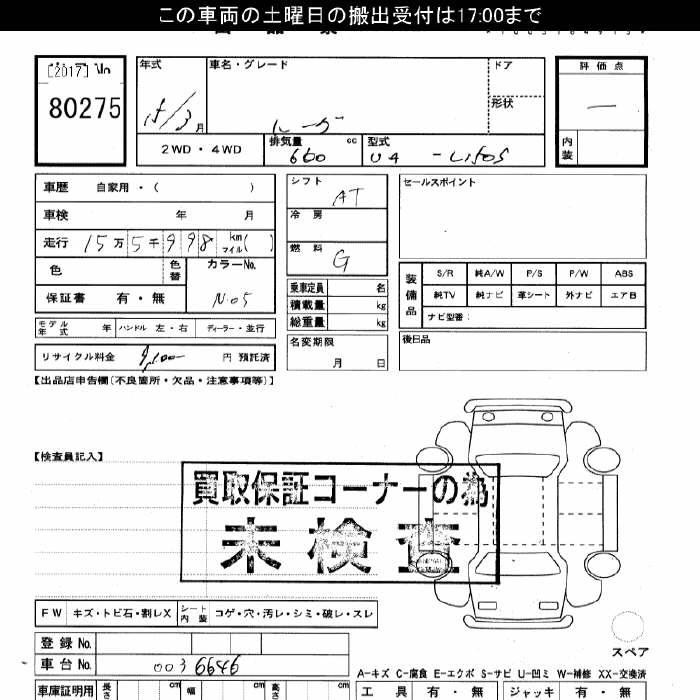 この車両の土曜日の搬出受付は17:00まで
[2017] No
80275
年式 車名・グレード ドア 評価点
15/3月 形状 —
2WD・4WD 排気量 660 cc 型式 U4 - 内装
車歴 自家用・( ) シフト AT セールスポイント
車検 年 月 冷房
走行 15万5千998 km マイル( ) 燃料 G
色 色替 カラーNo. N-05 乗車定員 名 装備品 S/R 純A/W P/S P/W ABS
保証書 有・無 積載量 kg 純TV 純ナビ 革シート 外ナビ エアB
総重量 kg ナビ型番:
モデル年式 年 ハンドル 左・右 ディーラー・並行 名変期限 後日品
リサイクル料金 円 預託済 月 日
【出品店申告欄(不良箇所・欠品・注意事項等)】
【検査員記入】
買取保証コーナーの為
未検査
FW キズ・トビ石・割レX シート内装 コゲ・穴・汚レ・シミ・破レ・スレ
登録No.
スペア
車台No. 0036646
A-キズ C-腐食 E-エクボ S-サビ U-凹ミ W-補修 XX-交換済
車庫証明用 長さ cm 幅 cm 高さ cm 工具 有・無 ジャッキ 有・無